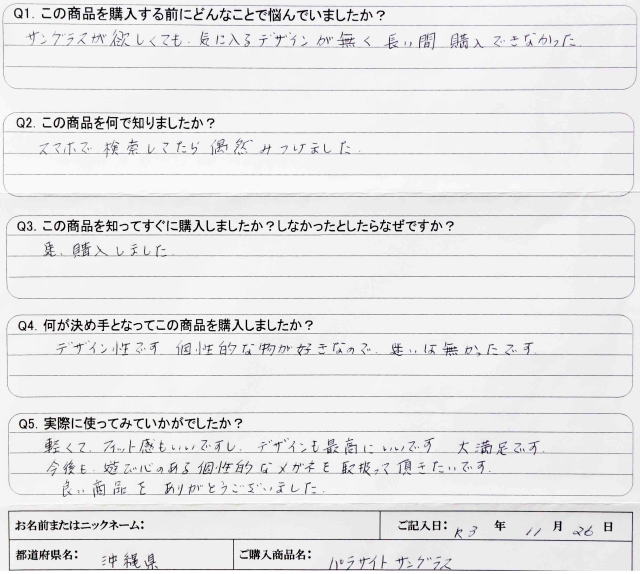 Q1. この商品を購入する前にどんなことで悩んでいましたか？
サングラスが欲しくても、気に入るデザインが無く 長い間 購入できなかった.
Q2. この商品を何で知りましたか？
スマホで 検索してたら 偶然 みつけました.
Q3. この商品を知ってすぐに購入しましたか？しなかったとしたらなぜですか？
購入しました.
Q4. 何が決め手となってこの商品を購入しましたか？
デザイン性です. 個性的な物が好きなので. 迷いは無かったです.
Q5. 実際に使ってみていかがでしたか？
軽くて、フィット感もいいですし、デザインも最高にいいです 大満足です.
今後も、遊び心のある個性的なメガネを取扱って頂きたいです.
良い商品を ありがとうございました.
お名前またはニックネーム： ご記入日： R3 年 11 月 26 日
都道府県名： 沖縄県 ご購入商品名： パラサイト サングラス